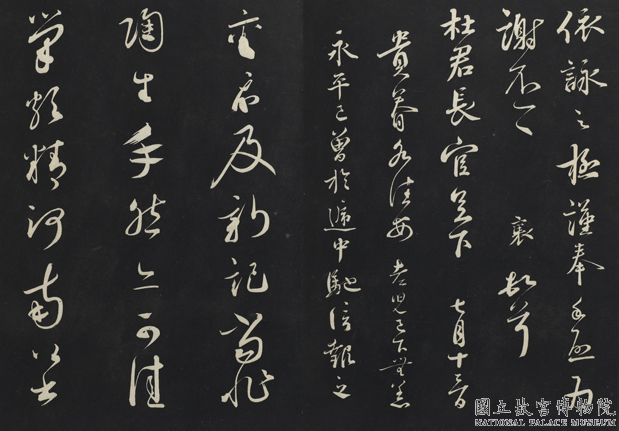 依詠之極謹奉手啟為
謝不一一 襄頓首
杜君長官足下 七月十三日
貴眷各佳安 老兒已下無恙
永平已曾於遞中馳信報之
及新記當非
陶生手然亦可佳
筆頗精河南公書
國立故宮博物院
NATIONAL PALACE MUSEUM